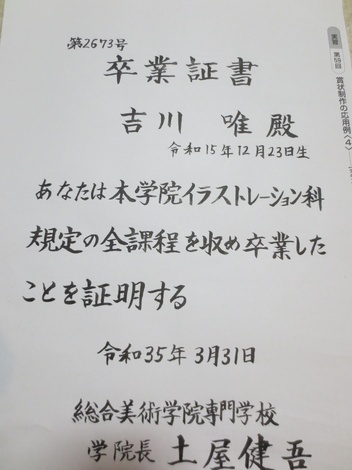 第2673号
卒業証書
吉川 唯 殿
令和15年12月23日生
あなたは本学院イラストレーション科
規定の全課程を収め卒業した
ことを証明する
令和35年3月31日
総合美術学院専門学校
学院長 土屋健吾
実習 第59回 賞状制作の応用例〈4〉